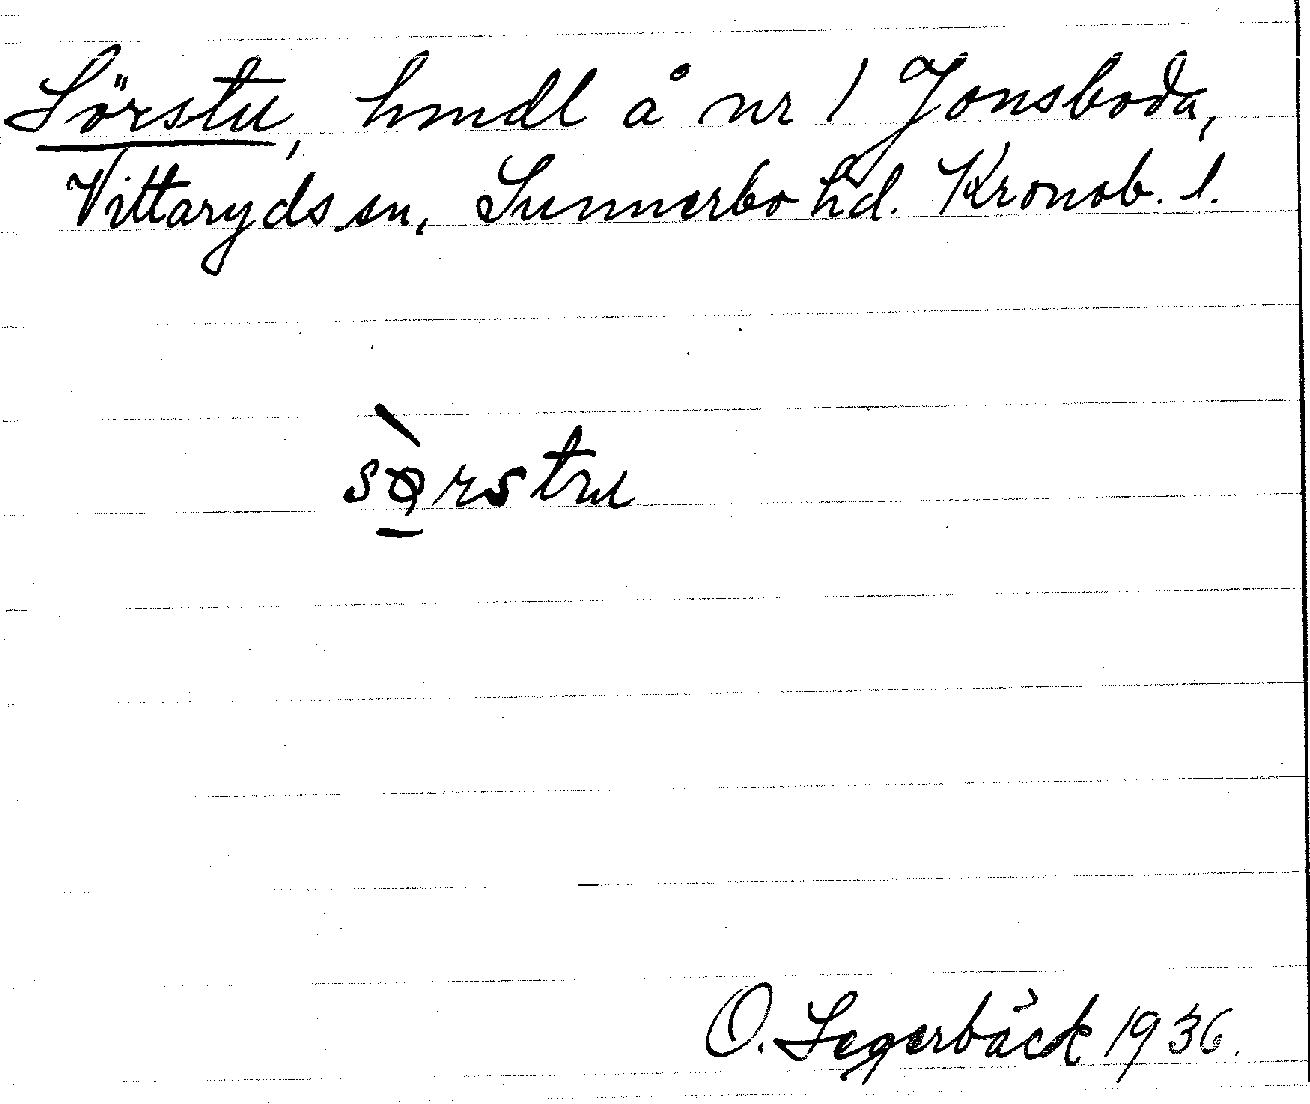 Sörstu, hmdl å nr 1 Jonsboda,
Vittaryds sn, Sunnerbo hd. Kronob. l.
sø̀rstu
O. Segerbäck 1936.